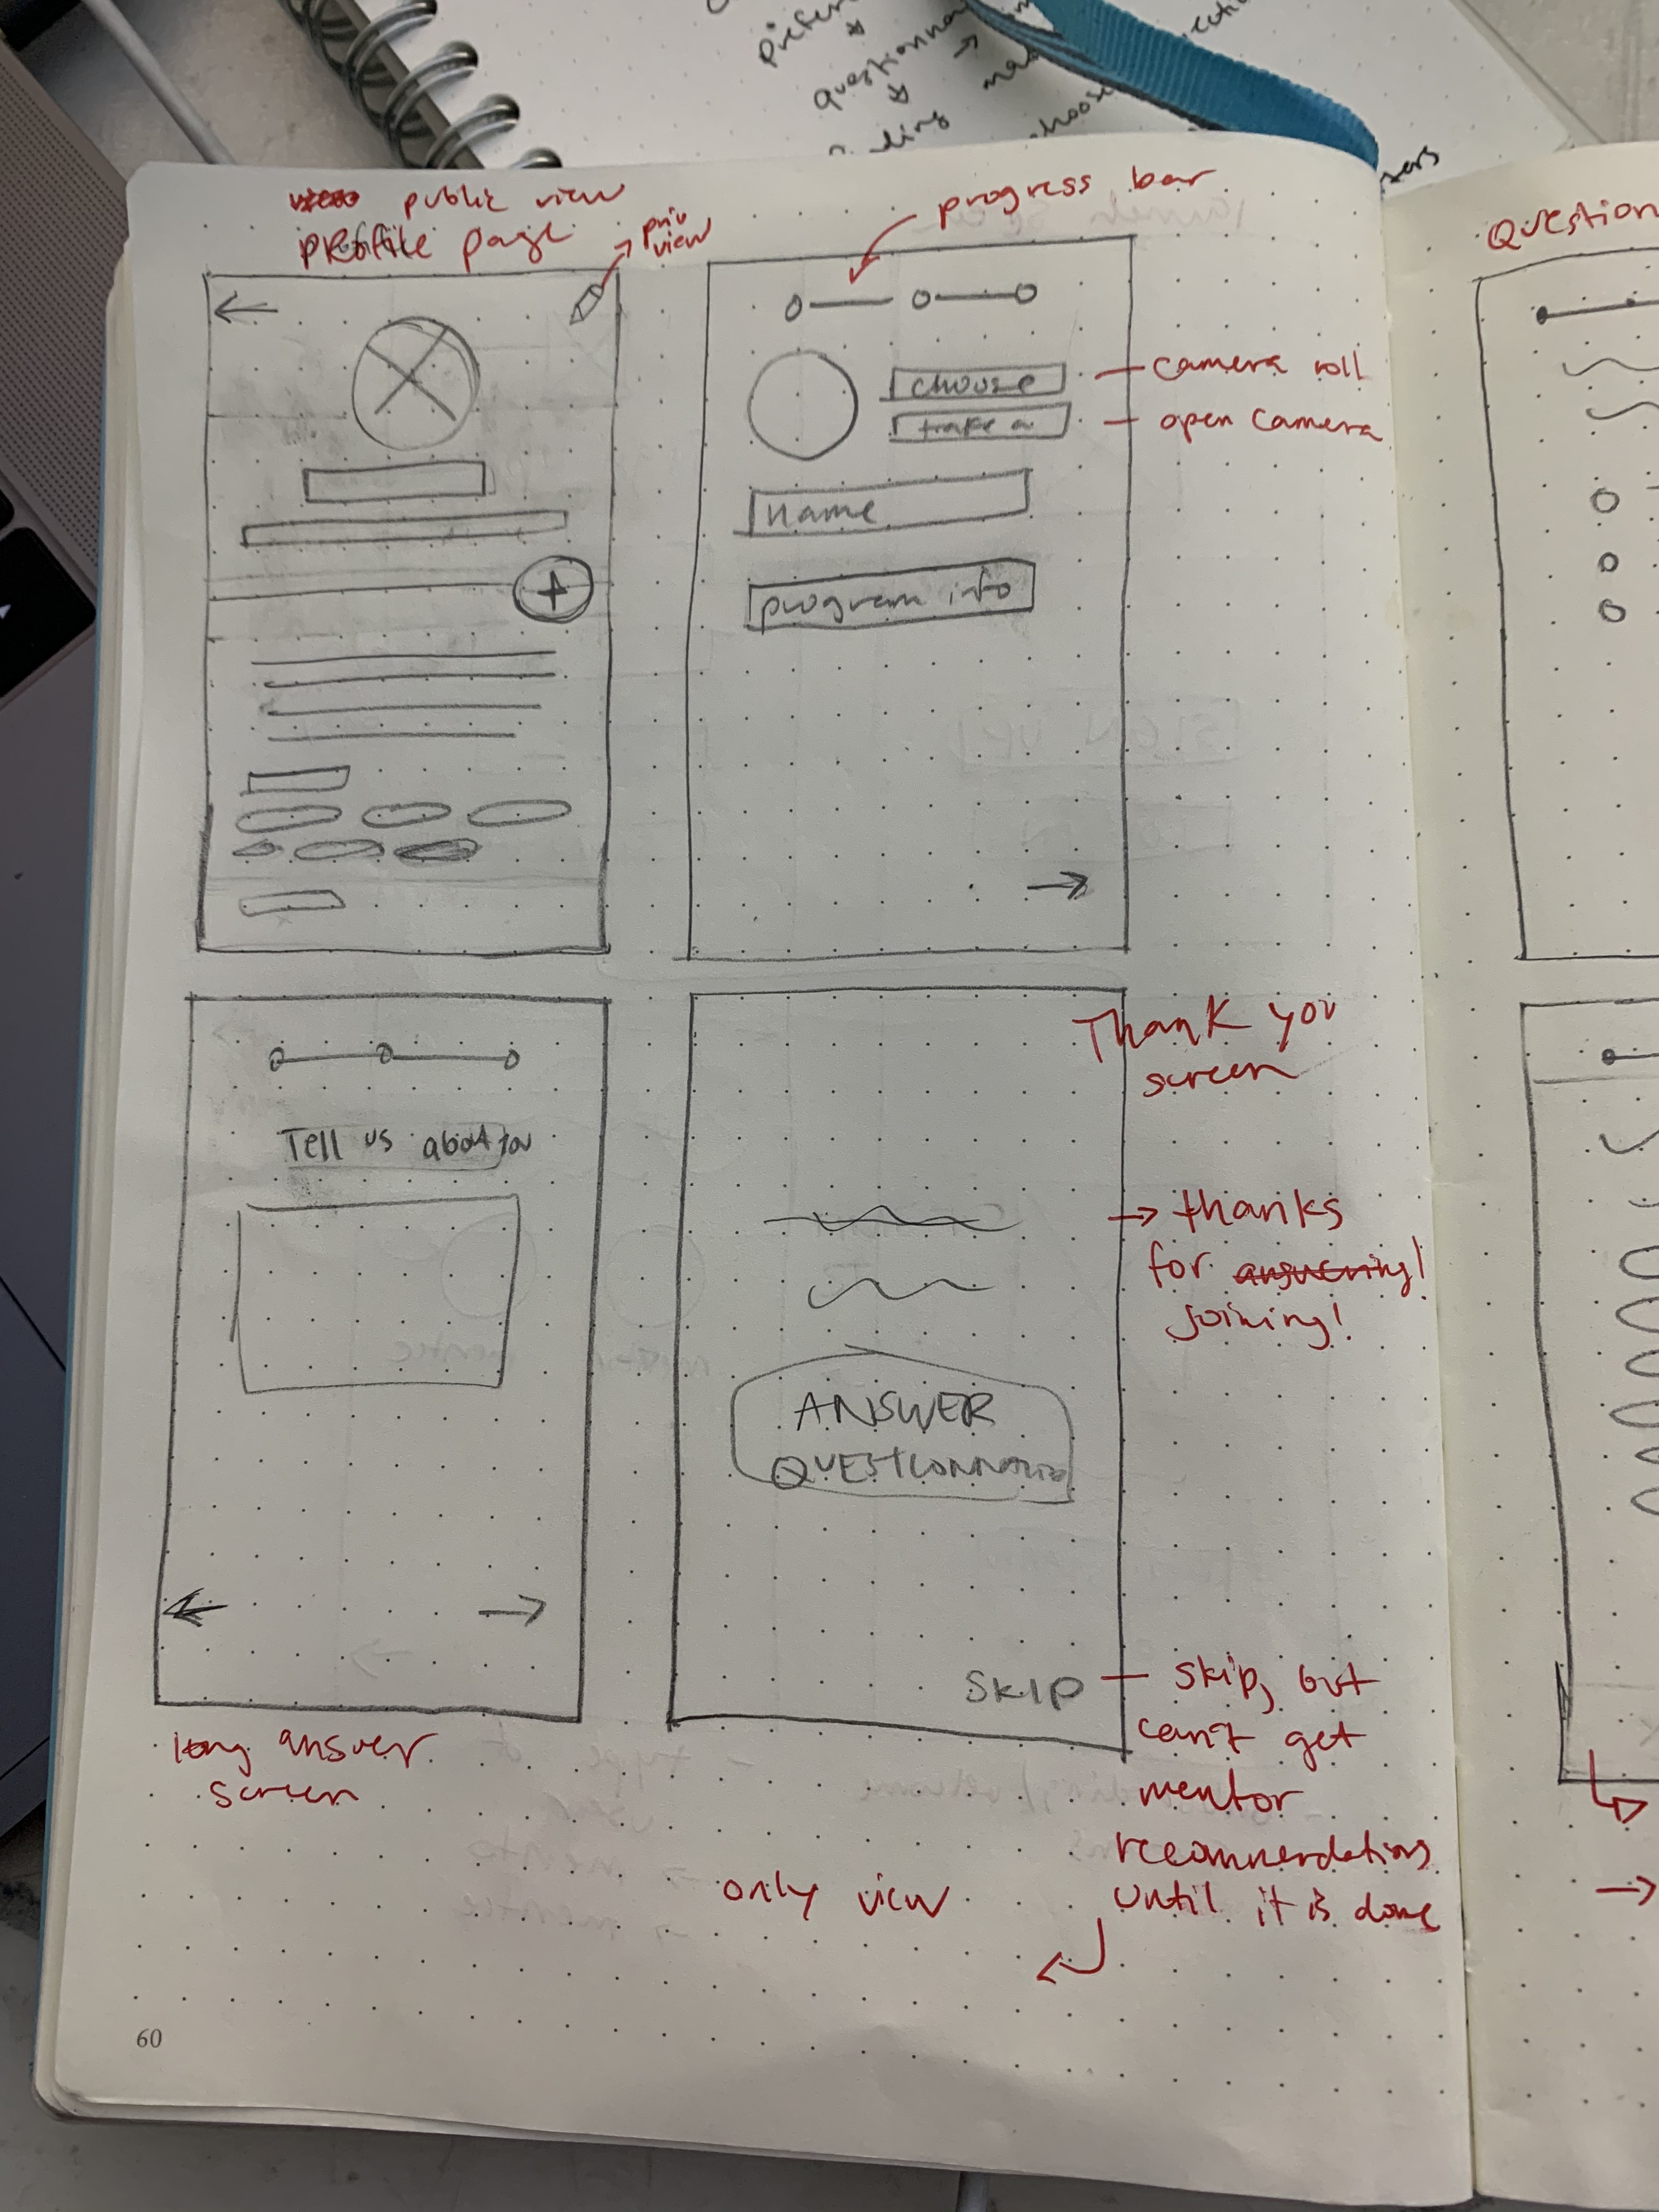 public view
profile page
priv
view
progress bar
choose
take a
camera roll
open camera
name
program info
Tell us about you
long answer
screen
Thank you
screen
→ thanks
for answering!
joining!
ANSWER
QUESTIONNAIRE
SKIP
skip, but
can't get
mentor
recommendations
until it is done
only view
60
Question